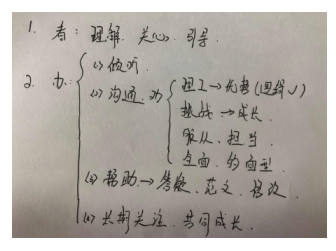 1. 看：理解、关心、引导.
2. 办：
(1) 倾听
(2) 沟通、功
理工→优势(逻辑✓)
挑战→成长.
服从、担当.
全面、的
(3) 帮助→答疑、范文、修改
(4) 长期关注、共同成长.